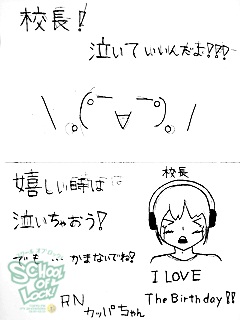 校長!
泣いていいんだよ!!!
嬉しい時は
泣いちゃおう!
でも…かまないでね?
校長
I LOVE
The Birthday!!
SCHOOL OF LOCK!
RN カッパちゃん